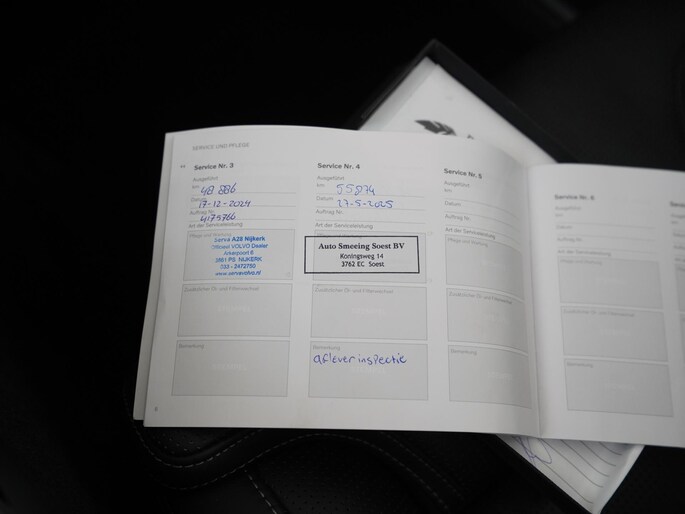 SERVICE UND PFLEGE
Service Nr. 3
Ausgeführt
km 48 886
Datum 17-12-2024
Auftrag Nr. 4175766
Art der Serviceleistung
Pflege und Wartung
Servé A28 Nijkerk
Officieel VOLVO Dealer
Arkerpoort 6
3861 PS NIJKERK
033 - 2472750
www.servevolvo.nl
Zusätzlicher Öl- und Filterwechsel
Bemerkung
6
Service Nr. 4
Ausgeführt
km 55874
Datum 27-5-2025
Auftrag Nr.
Art der Serviceleistung
Auto Smeeing Soest BV
Koningsweg 14
3762 EC Soest
Zusätzlicher Öl- und Filterwechsel
Bemerkung
afleverinspectie
Service Nr. 5
Ausgeführt
km
Datum
Auftrag Nr.
Art der Serviceleistung
Pflege und Wartung
Zusätzlicher Öl- und Filterwechsel
Bemerkung
Service Nr. 6
Ausgeführt
km
Datum
Auftrag Nr.
Art der Serviceleistung
Pflege und Wartung
Zusätzlicher Öl- und Filterwechsel
Bemerkung